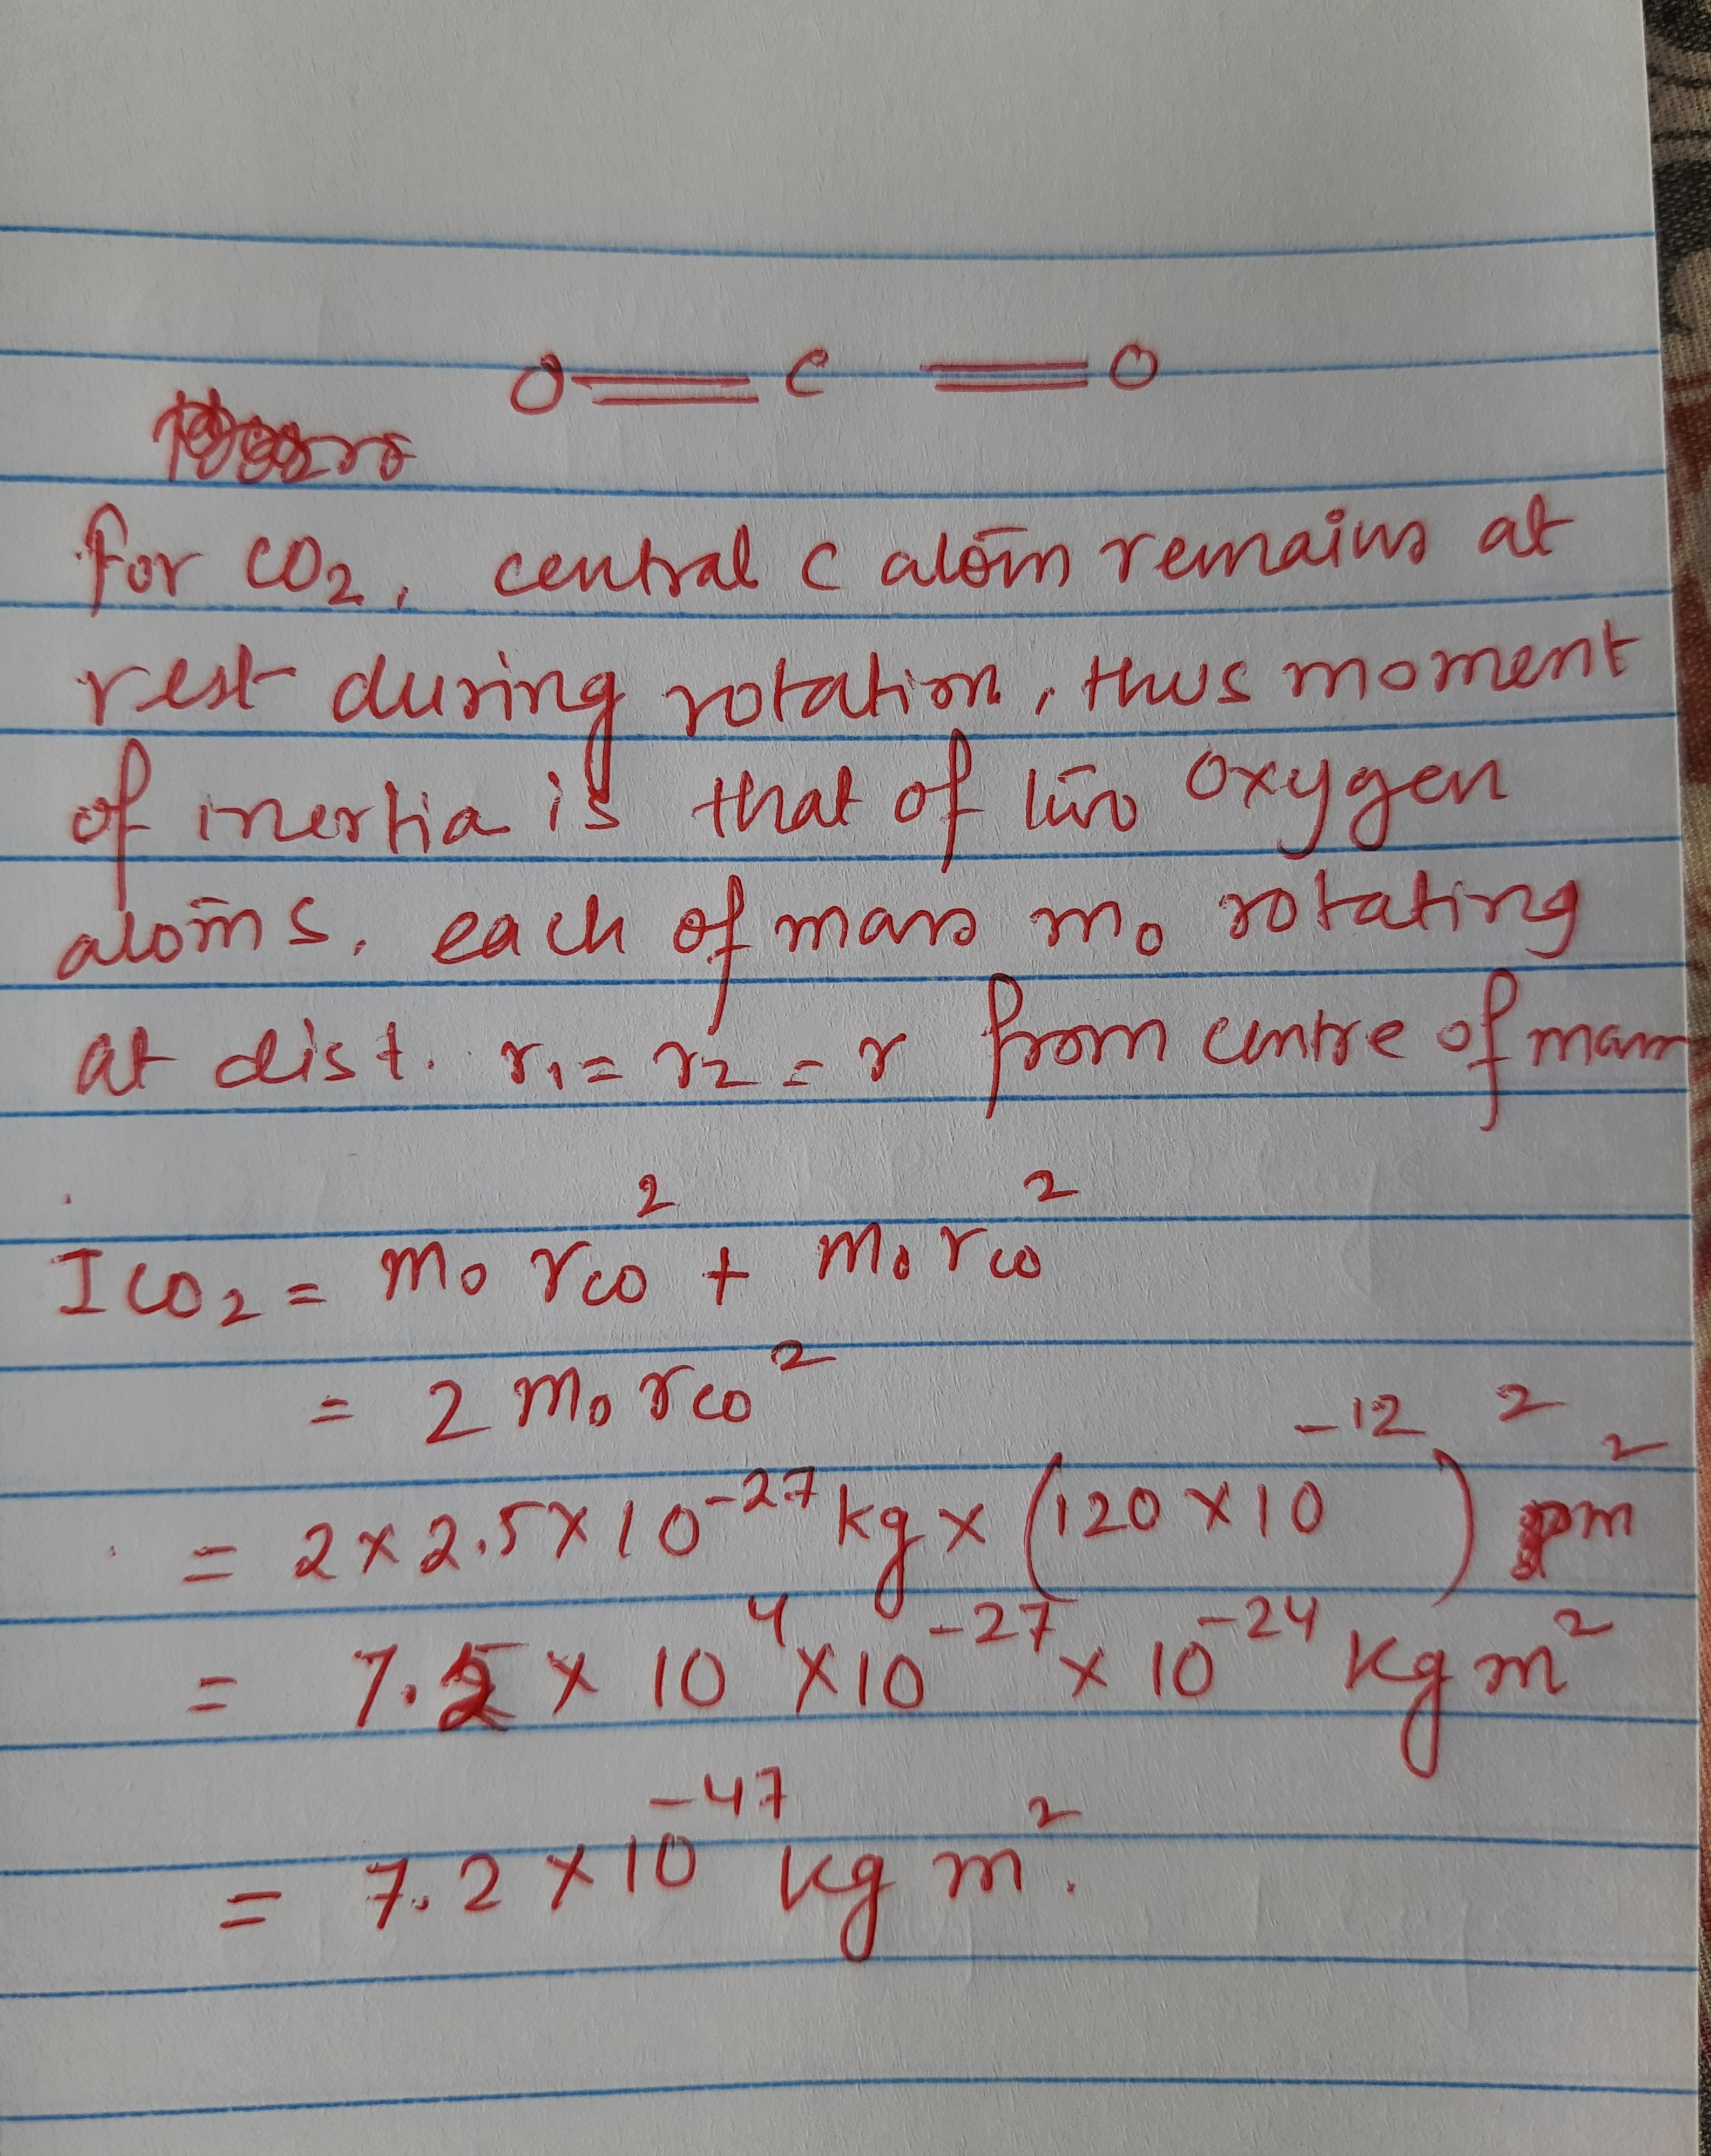 O = C = O
For CO2, central C atom remains at
rest during rotation, thus moment
of inertia is that of two oxygen
atoms, each of mass mo rotating
at dist. r1 = r2 = r from centre of mass
ICO2 = mo rco² + mo rco²
= 2 mo rco²
= 2 × 2.5 × 10⁻²⁷ kg × (120 × 10⁻¹²)² m²
= 7.2 × 10⁴ × 10⁻²⁷ × 10⁻²⁴ kg m²
= 7.2 × 10⁻⁴⁷ kg m².